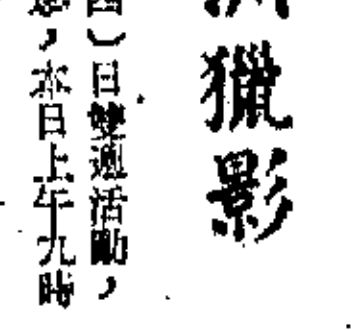 獵影
四）日雙週活動，
，本日上午九時